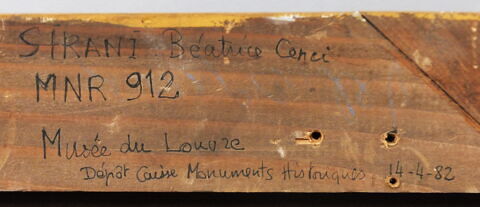 SIRANI Béatrice Cenci
MNR 912
Musée du Louvre
Dépôt Caisse Monuments Historiques 14-4-82